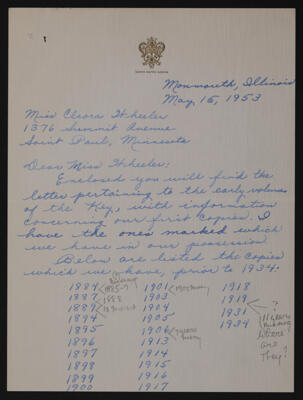 Monmouth, Illinois
May, 15, 1953
Miss Cleora Wheeler
1376 Summit Avenue
Saint Paul, Minnesota
Dear Miss Wheeler:
Enclosed you will find the
letter pertaining to the early volumes
of the Key, with information
concerning our first copies. I
have the ones marked which
we have in our possession.
Below are listed the copies
which we have, prior to 1934.
1884 1901 1918
1887 1903 1919 ?
1889 1904 1931
1894 1905 1934
1895 1906 where
1896 1913 are
1897 1914 they?
1898 1915
1899 1916
1900 1917